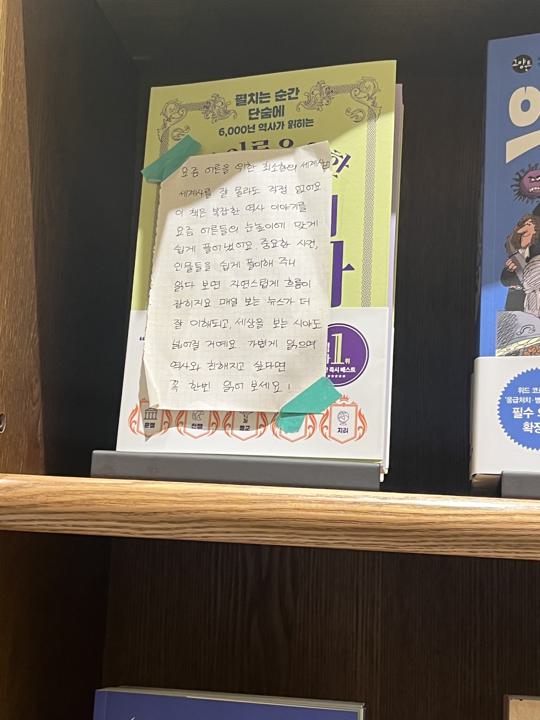 펼치는 순간
단숨에
6,000년 역사가 읽히는
요즘 어른을 위한 최소한의 세계사
세계사를 잘 몰라도 걱정 없어요
이 책은 복잡한 역사 이야기를
요즘 어른들의 눈높이에 맞게
쉽게 풀어냈어요. 중요한 사건,
인물들을 쉽게 풀이해 주니
읽다 보면 자연스럽게 흐름이
잡히지요 매일 보는 뉴스가 더
잘 이해되고, 세상을 보는 시야도
넓어질 거예요 가볍게 읽으며
역사와 친해지고 싶다면
꼭 한번 읽어 보세요!
1위
즉시 베스트
문명
전쟁
종교
지리
그랑
위드 코
응급처치·병
필수 의
확장